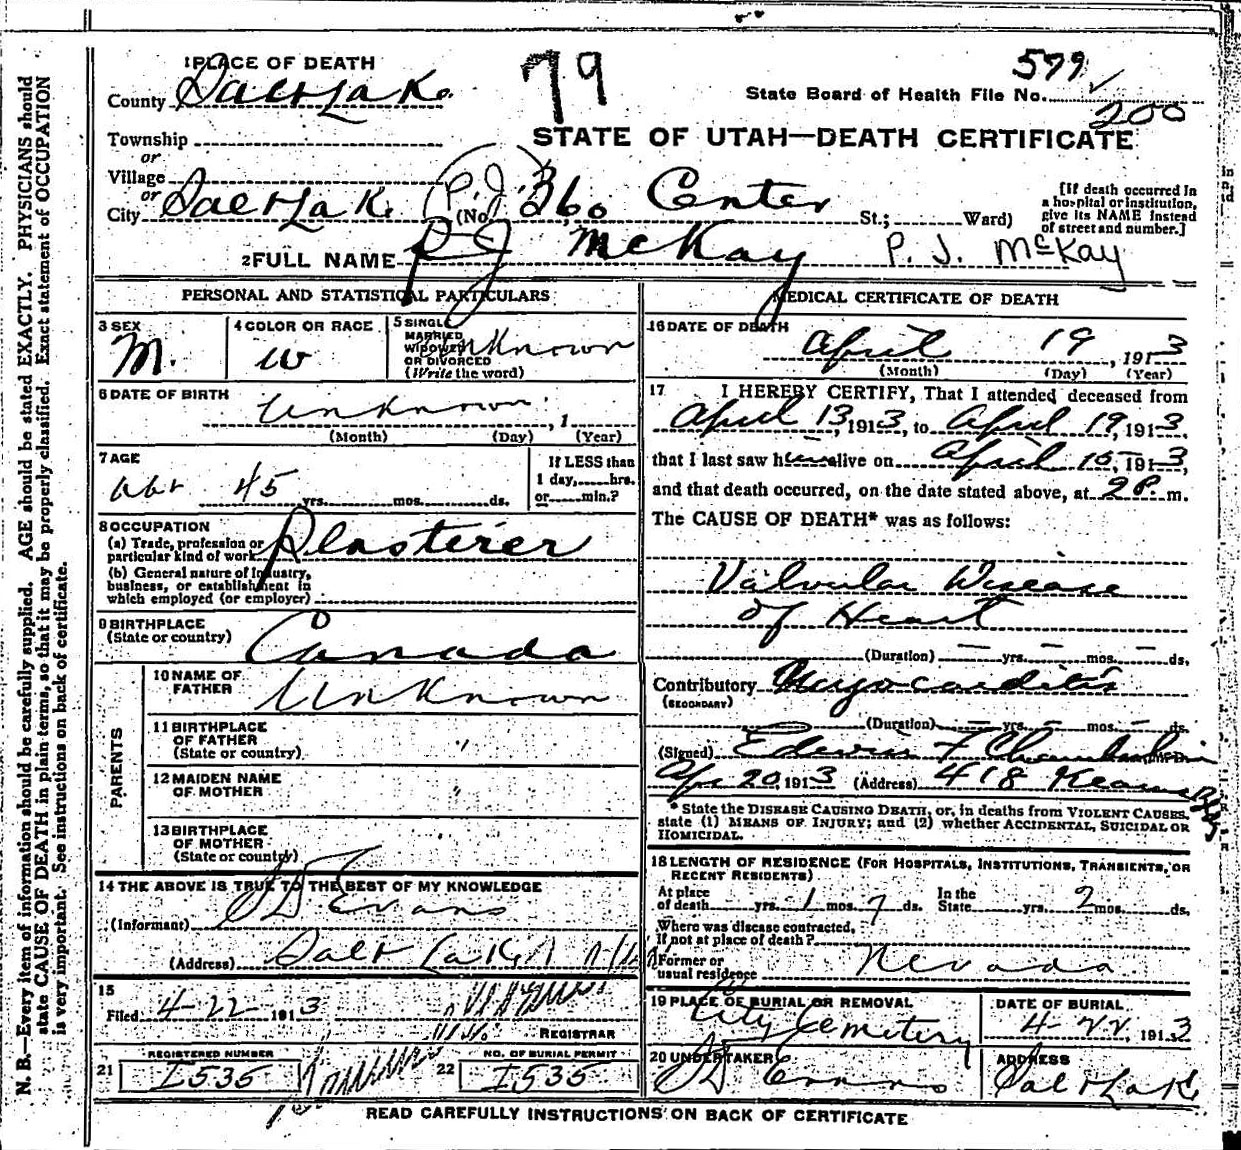 79
579
1 PLACE OF DEATH
County Salt Lake
State Board of Health File No. 200
Township
STATE OF UTAH—DEATH CERTIFICATE
or
Village
or
City Salt Lake (P.J. (No. 360 Center St.; Ward)
[If death occurred in
a hospital or institution,
give its NAME instead
of street and number.]
2 FULL NAME P J McKay P. J. McKay
PERSONAL AND STATISTICAL PARTICULARS
3 SEX M.
4 COLOR OR RACE W
5 SINGLE
MARRIED
WIDOWED
OR DIVORCED
(Write the word) Unknown
6 DATE OF BIRTH Unknown , 1
(Month) (Day) (Year)
7 AGE
abt 45 yrs. mos. ds.
If LESS than
1 day, hrs.
or min.?
8 OCCUPATION
(a) Trade, profession or
particular kind of work Plasterer
(b) General nature of Industry,
business, or establishment in
which employed (or employer)
9 BIRTHPLACE
(State or country) Canada
PARENTS
10 NAME OF
FATHER Unknown
11 BIRTHPLACE
OF FATHER
(State or country) "
12 MAIDEN NAME
OF MOTHER "
13 BIRTHPLACE
OF MOTHER
(State or country)
14 THE ABOVE IS TRUE TO THE BEST OF MY KNOWLEDGE
(Informant) Evans
(Address) Salt Lake
15
Filed 4-22 1913
REGISTRAR
21 REGISTERED NUMBER
I535
22 NO. OF BURIAL PERMIT
I535
MEDICAL CERTIFICATE OF DEATH
16 DATE OF DEATH
April 19, 1913
(Month) (Day) (Year)
17 I HEREBY CERTIFY, That I attended deceased from
April 13, 1913, to April 19, 1913,
that I last saw him alive on April 15, 1913,
and that death occurred, on the date stated above, at 2 P. m.
The CAUSE OF DEATH* was as follows:
Valvular Disease
of Heart
(Duration) — yrs. — mos. — ds.
Contributory Myocarditis
(SECONDARY)
(Duration) — yrs. — mos. — ds.
(Signed) Edwin F Chamberlain M.D.
Apr 20, 1913 (Address) 418 Kearns Bldg
* State the DISEASE CAUSING DEATH, or, in deaths from VIOLENT CAUSES,
state (1) MEANS OF INJURY; and (2) whether ACCIDENTAL, SUICIDAL OR
HOMICIDAL.
18 LENGTH OF RESIDENCE (FOR HOSPITALS, INSTITUTIONS, TRANSIENTS, OR
RECENT RESIDENTS)
At place
of death yrs. 1 mos. 7 ds.
In the
State yrs. 2 mos. ds.
Where was disease contracted,
If not at place of death?
Former or
usual residence Nevada
19 PLACE OF BURIAL OR REMOVAL
City Cemetery
DATE OF BURIAL
4-22, 1913
20 UNDERTAKER
Evans
ADDRESS
Salt Lake
READ CAREFULLY INSTRUCTIONS ON BACK OF CERTIFICATE
N. B.—Every item of information should be carefully supplied. AGE should be stated EXACTLY. PHYSICIANS should
state CAUSE OF DEATH in plain terms, so that it may be properly classified. Exact statement of OCCUPATION
is very important. See instructions on back of certificate.